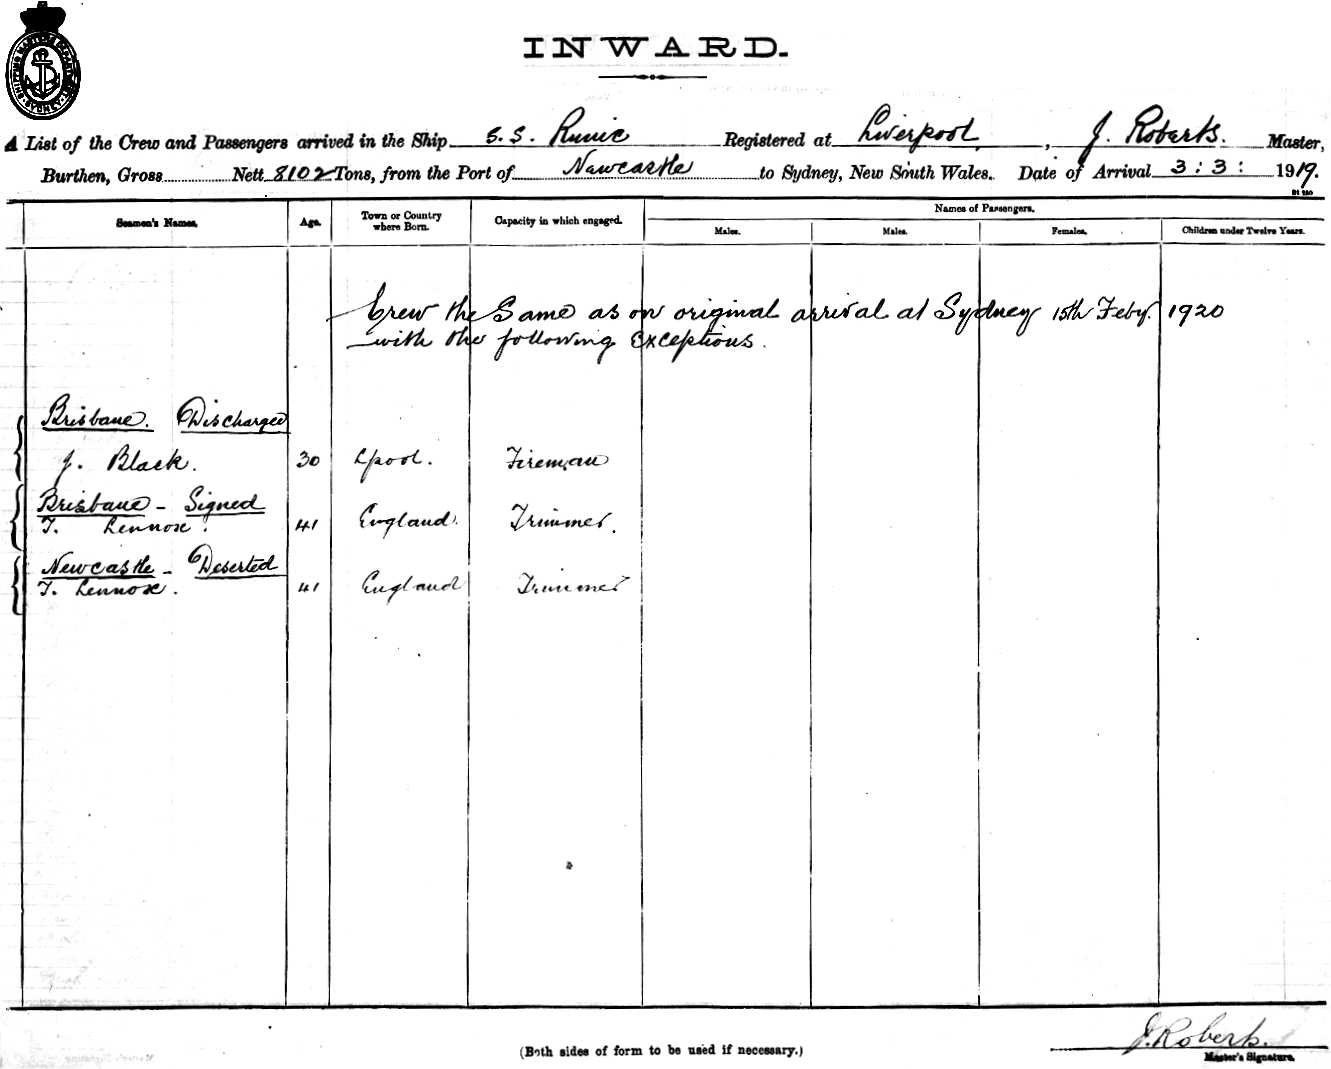 SHIPPING MASTER'S DEPARTMENT SYDNEY
INWARD.
A List of the Crew and Passengers arrived in the Ship S.S. Runic Registered at Liverpool, J. Roberts. Master,
Burthen, Gross Nett 8102 Tons, from the Port of Newcastle to Sydney, New South Wales. Date of Arrival 3:3: 1919.
Seamen's Names. Age. Town or Country where Born. Capacity in which engaged. Names of Passengers.
Males. Males. Females. Children under Twelve Years.
Crew the Same as on original arrival at Sydney 15th Feby. 1920
with the following exceptions.
Brisbane. Discharged
J. Black. 30 Lpool. Fireman
Brisbane - Signed
T. Lennox. 41 England. Trimmer.
Newcastle - Deserted
T. Lennox. 41 England Trimmer
J. Roberts.
(Both sides of form to be used if necessary.) Master's Signature.